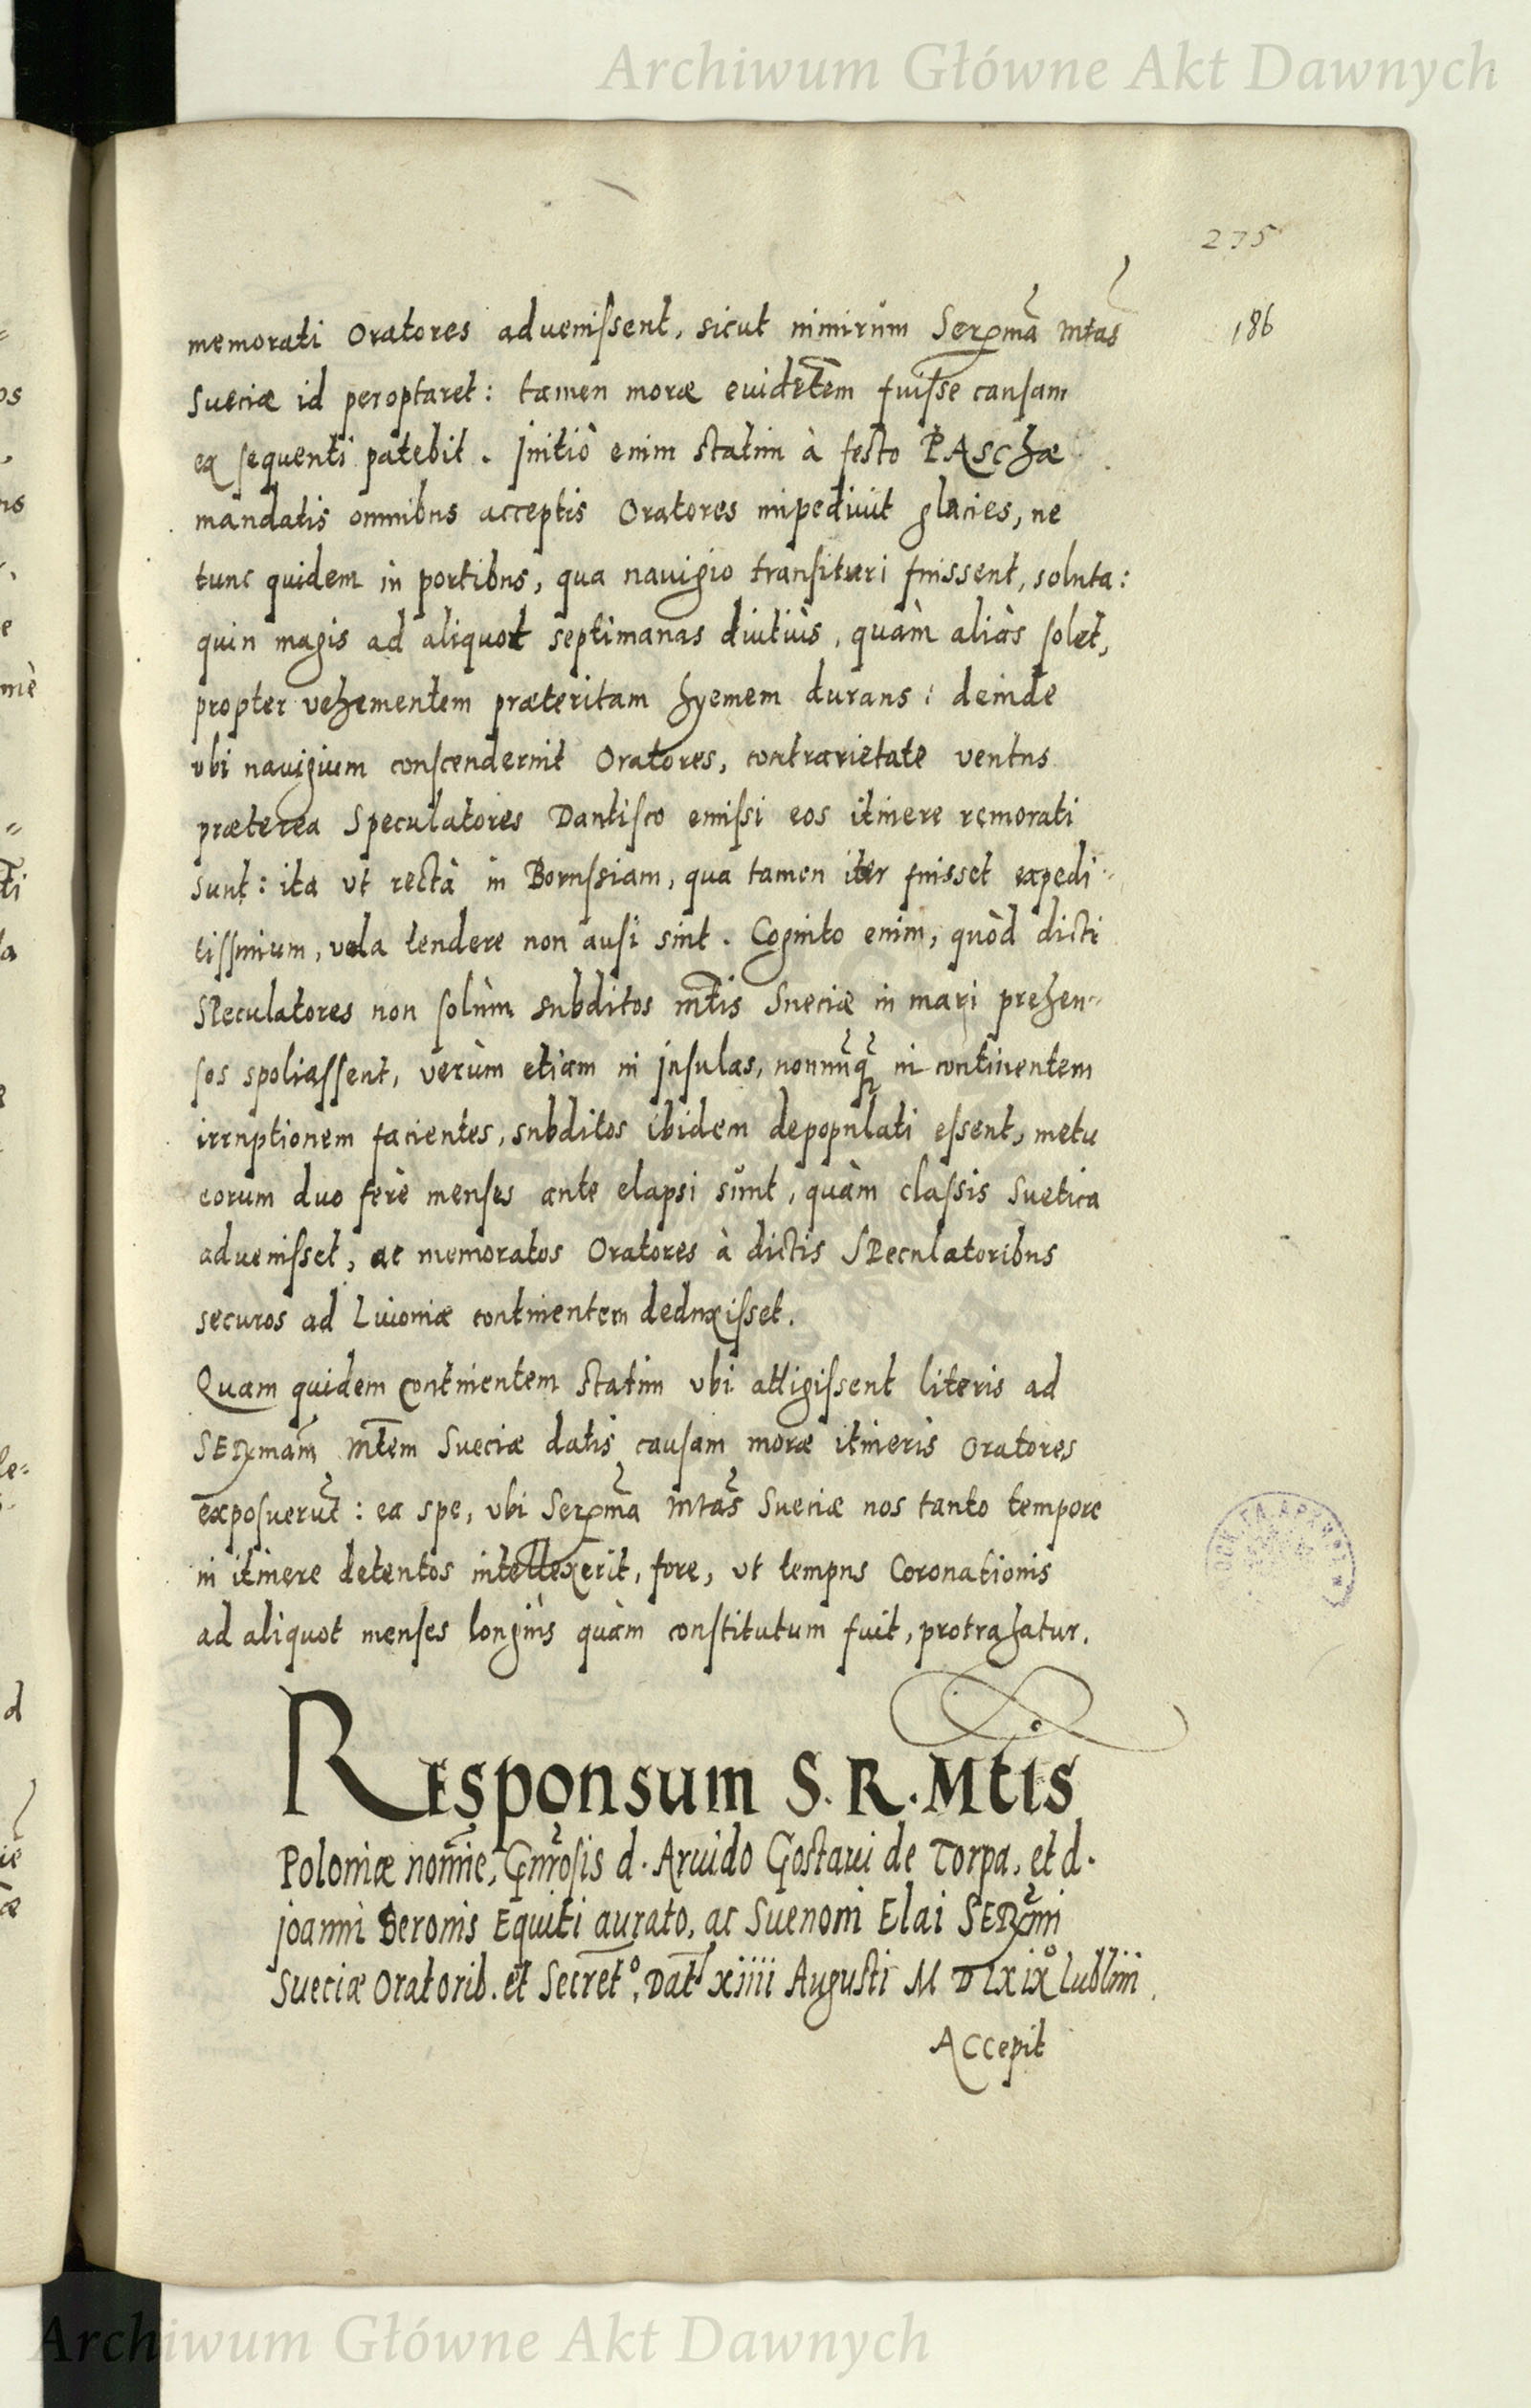 Archiwum Główne Akt Dawnych
275
186
memorati Oratores advenissent, sicut nimirùm Serxma Mtas
Sueciæ id peroptaret: tamen moræ evidetem fuisse causam
ex sequenti patebit. Initiò enim statim à festo PASchæ
mandatis omnibus acceptis Oratores impedivit glacies, ne
tunc quidem in portibus, qua navigio transituri fuissent, soluta:
quin magis ad aliquot septimanas diutiùs, quàm aliàs solet,
propter vehementem præteritam hyemem durans: deinde
vbi navigium conscenderint Oratores, contrarietate ventus
præterea Speculatores Dantisco emissi eos itinere remorati
sunt: ita vt rectà in Borussiam, qua tamen iter fuisset expedi-
tissimum, vela tendere non ausi sint. Cognito enim, quòd dicti
SPeculatores non solùm subditos Mtis Sueciæ in mari prehen-
sos spoliassent, verùm etiam in Insulas, nonnuq in continentem
irruptionem facientes, subditos ibidem depopulati essent, metu
eorum duo ferè menses ante elapsi sunt, quàm classis Suetica
advenisset, ac memoratos Oratores à dictis SPeculatoribus
securos ad Liuoniæ continentem deduxisset.
Quam quidem continentem statim vbi attigissent literis ad
SERxmam Mtem Sueciæ datis causam moræ itineris Oratores
exposuerut: ea spe, vbi Serxma Mtas Sueciæ nos tanto tempore
in itinere detentos intellexerit, fore, vt tempus Coronationis
ad aliquot menses longiùs quàm constitutum fuit, protrahatur.
REsponsum S. R. Mtis
Poloniæ nomine, Gnrosis d. Arvido Gostaui de Torpa, et d.
Joanni Beronis Equiti aurato, ac Suenoni Elai SERxmi
Sueciæ Oratorib. et Secreto, Dat xiiii Augusti M D Lxix Lublini.
Accepit
Archiwum Główne Akt Dawnych